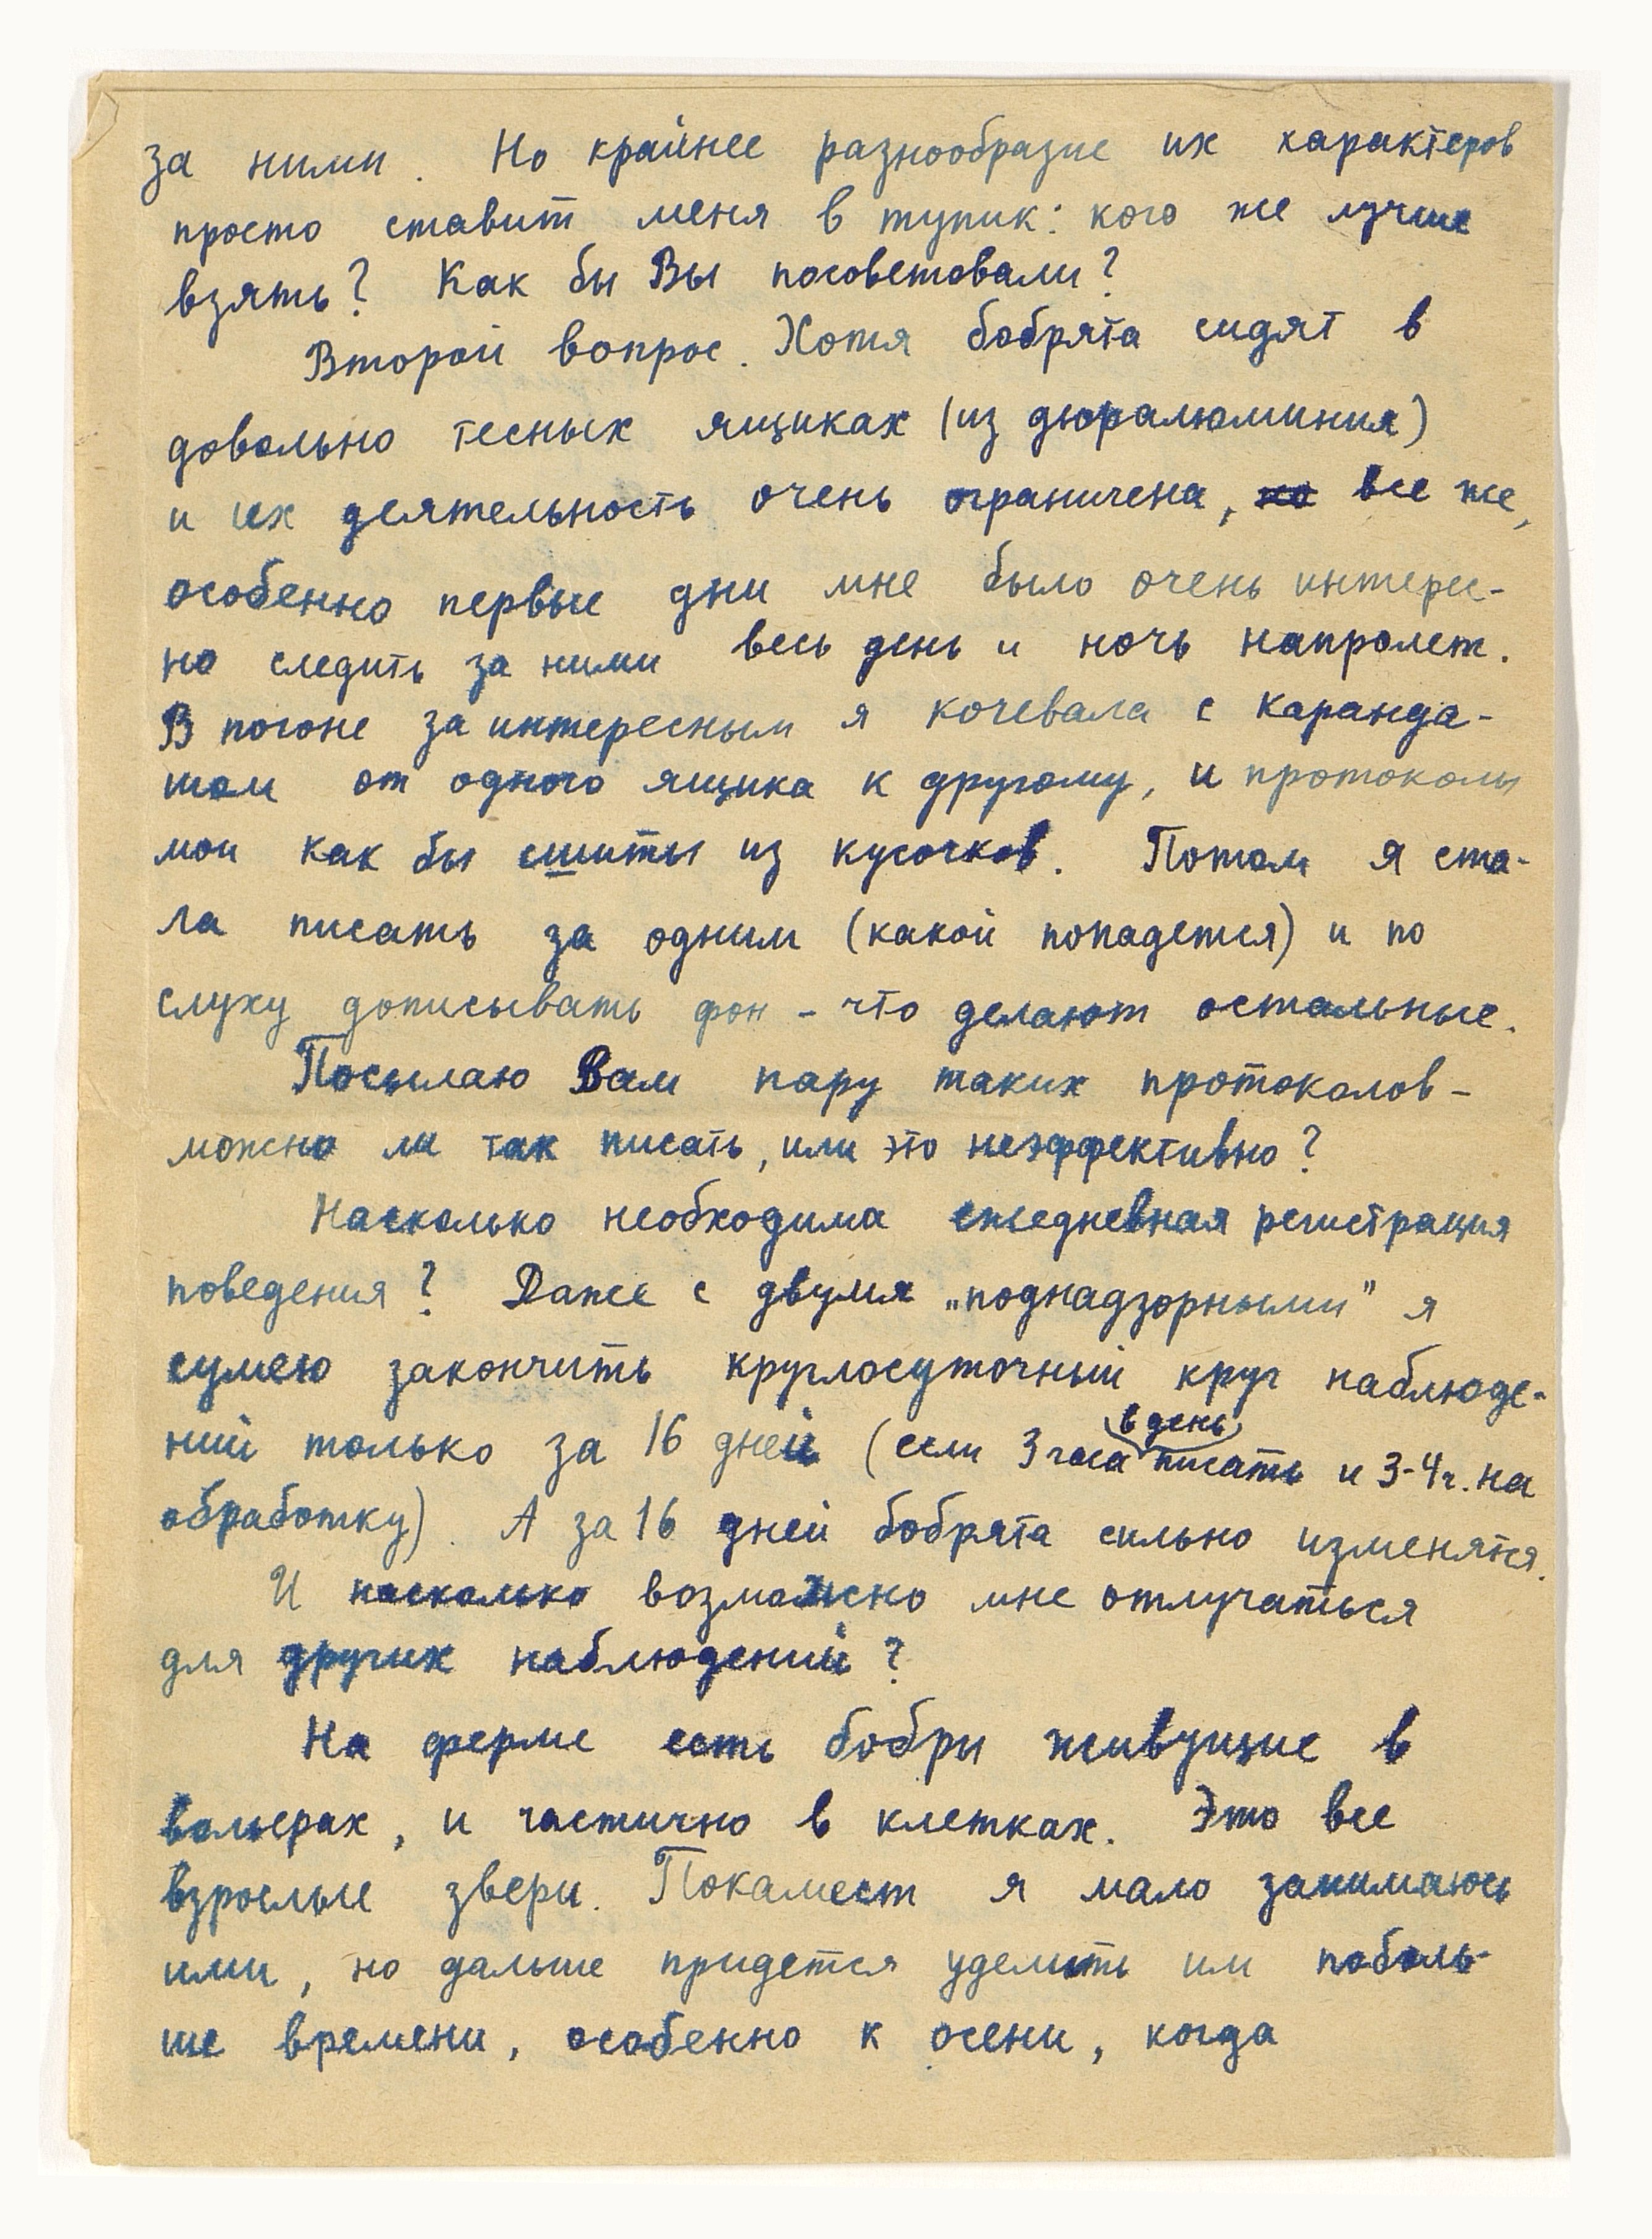 за ними. Но крайнее разнообразие их характеров
просто ставит меня в тупик: кого же лучше
взять? Как бы Вы посоветовали?
Второй вопрос. Хотя бобрята сидят в
довольно тесных ящиках (из дюралюминия)
и их деятельность очень ограничена, но все же,
особенно первые дни мне было очень интерес-
но следить за ними весь день и ночь напролет.
В погоне за интересным я кочевала с каранда-
шом от одного ящика к другому, и протоколы
мои как бы сшиты из кусочков. Потом я ста-
ла писать за одним (какой попадется) и по
слуху дописывать фон - что делают остальные.
Посылаю Вам пару таких протоколов -
можно ли так писать, или это неэффективно?
Насколько необходима ежедневная регистрация
поведения? Даже с двумя „поднадзорными" я
сумею закончить круглосуточный круг наблюде-
ний только за 16 дней (если 3 часа в день писать и 3-4 ч. на
обработку). А за 16 дней бобрята сильно изменятся.
И насколько возможно мне отлучаться
для других наблюдений?
На ферме есть бобры живущие в
вольерах, и частично в клетках. Это все
взрослые звери. Покамест я мало занимаюсь
ими, но дальше придется уделить им поболь-
ше времени, особенно к осени, когда